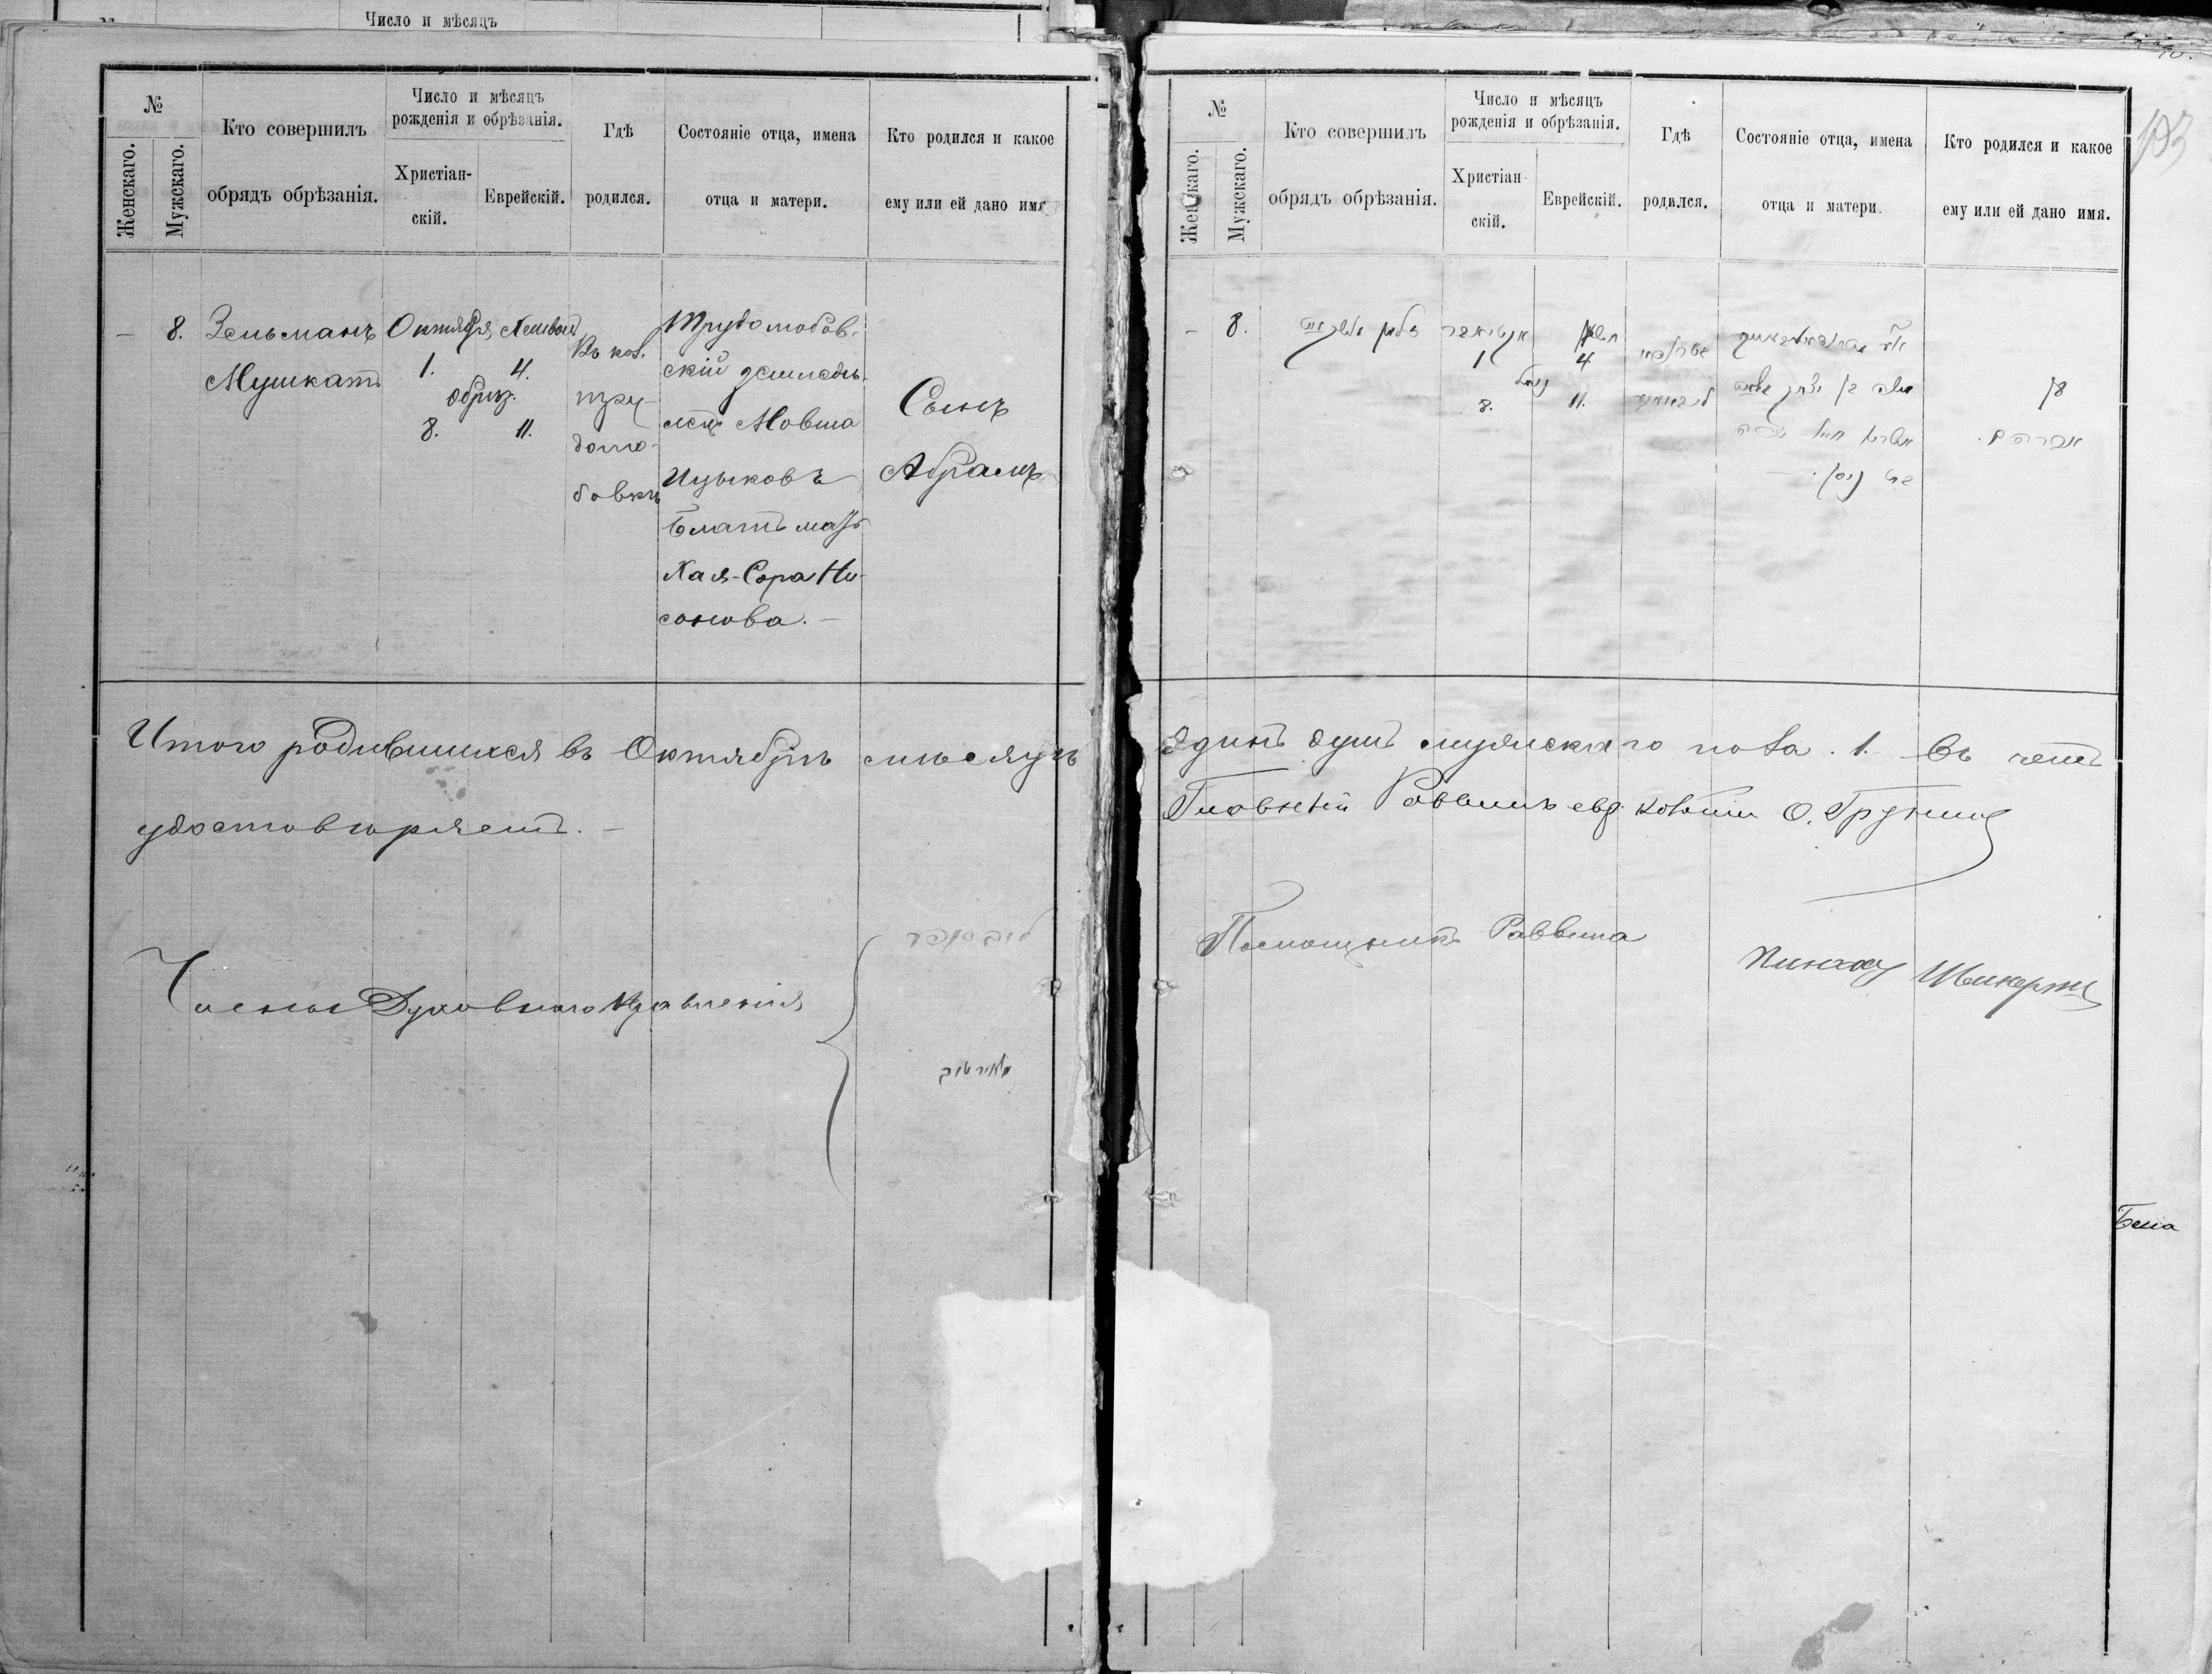 Число и мѣсяцъ
№
Женскаго.
Мужскаго.
Кто совершилъ
обрядъ обрѣзанія.
Число и мѣсяцъ
рожденія и обрѣзанія.
Христіан-
скій.
Еврейскій.
Гдѣ
родился.
Состояніе отца, имена
отца и матери.
Кто родился и какое
ему или ей дано имя
— 8.
Зельманъ
Мушкатъ
Октября
1.
Хешвонъ
4.
обрѣз.
8. 11.
Въ кол.
тру-
долю-
бовкѣ
Трудолюбов-
скій земледѣ-
лецъ Мовша
Ицыковъ
Блатъ мать
Хая-Сора Ни-
сонова. —
Сынъ
Абрамъ
Итого родившихся въ Октябрѣ мѣсяцѣ
удостовѣряетъ. —
Члены Духовного Правленія
№
Женскаго.
Мужскаго.
Кто совершилъ
обрядъ обрѣзанія.
Число и мѣсяцъ
рожденія и обрѣзанія.
Христіан-
скій.
Еврейскій.
Гдѣ
родился.
Состояніе отца, имена
отца и матери.
Кто родился и какое
ему или ей дано имя.
193
— 8.
זלמן מושקאט
אקטיאבר
1
חשון
4
נימול
8. 11.
משה בן יצחק
בן
אברהם.
שרה
בת ניסן. —
Одинъ душъ мужскаго пола. 1. Въ чемъ
Главный Раввинъ евр. колоніи О.
Помощникъ Раввина
Пинхасъ
Бела